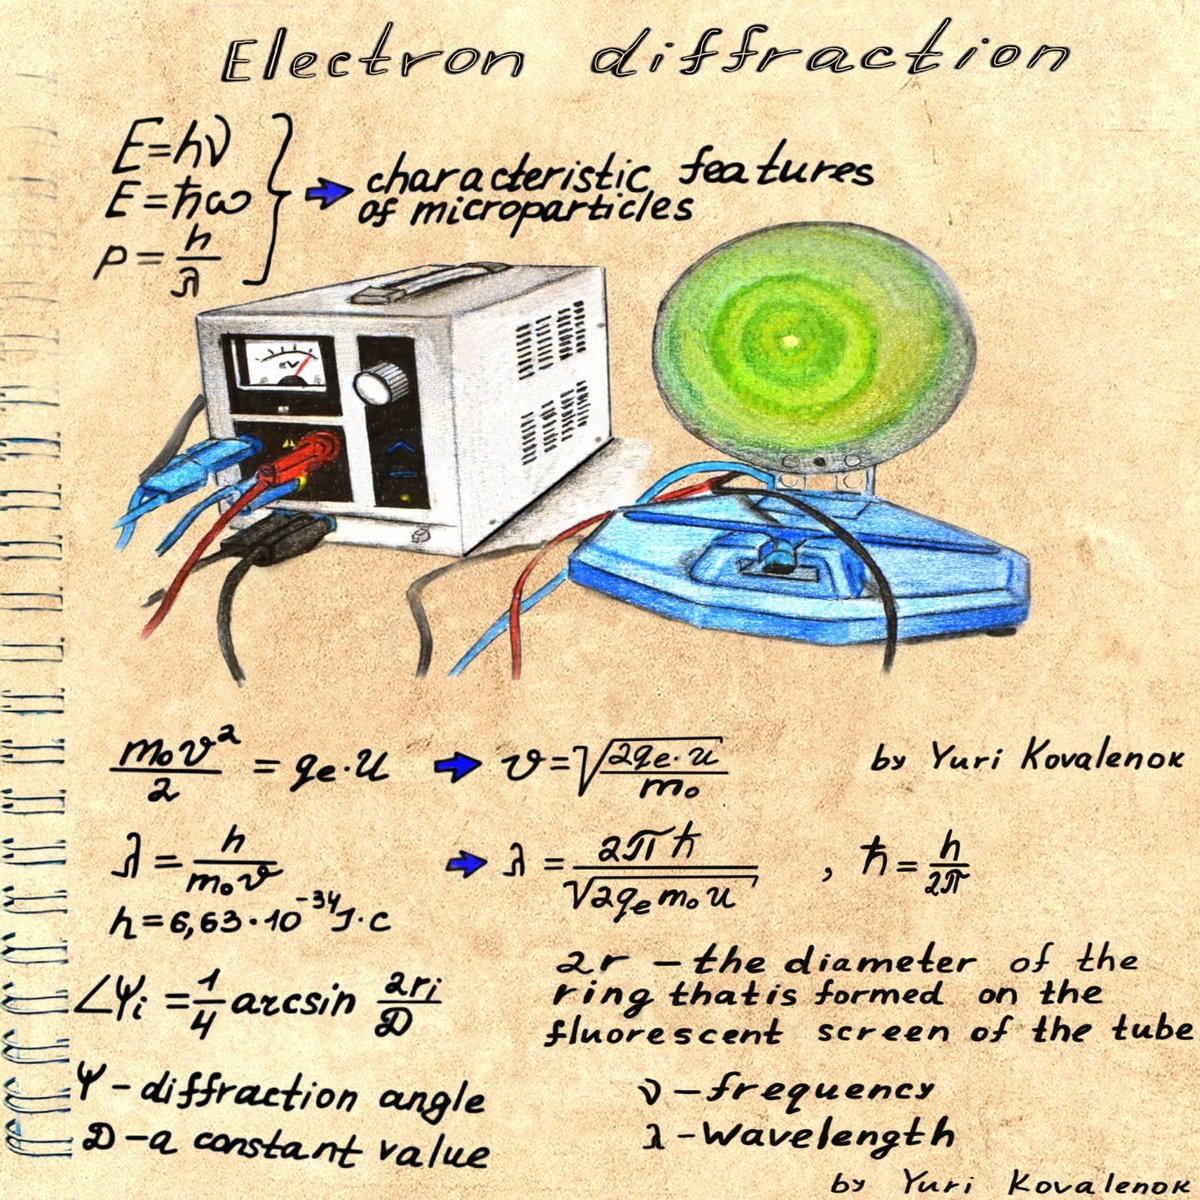 Electron diffraction
E=hν
E=ħω
p=h/λ
characteristic features
of microparticles
KV
m₀v²/2 = qₑ·u → v=√(2qₑ·u/m₀)
by Yuri Kovalenok
λ=h/m₀v → λ=2πħ/√(2qₑm₀u) , ħ=h/2π
h=6,63·10⁻³⁴J·c
∠Ψᵢ=1/4 arcsin 2rᵢ/D
2r – the diameter of the
ring that is formed on the
fluorescent screen of the tube
Ψ – diffraction angle
D – a constant value
ν – frequency
λ – wavelength
by Yuri Kovalenok